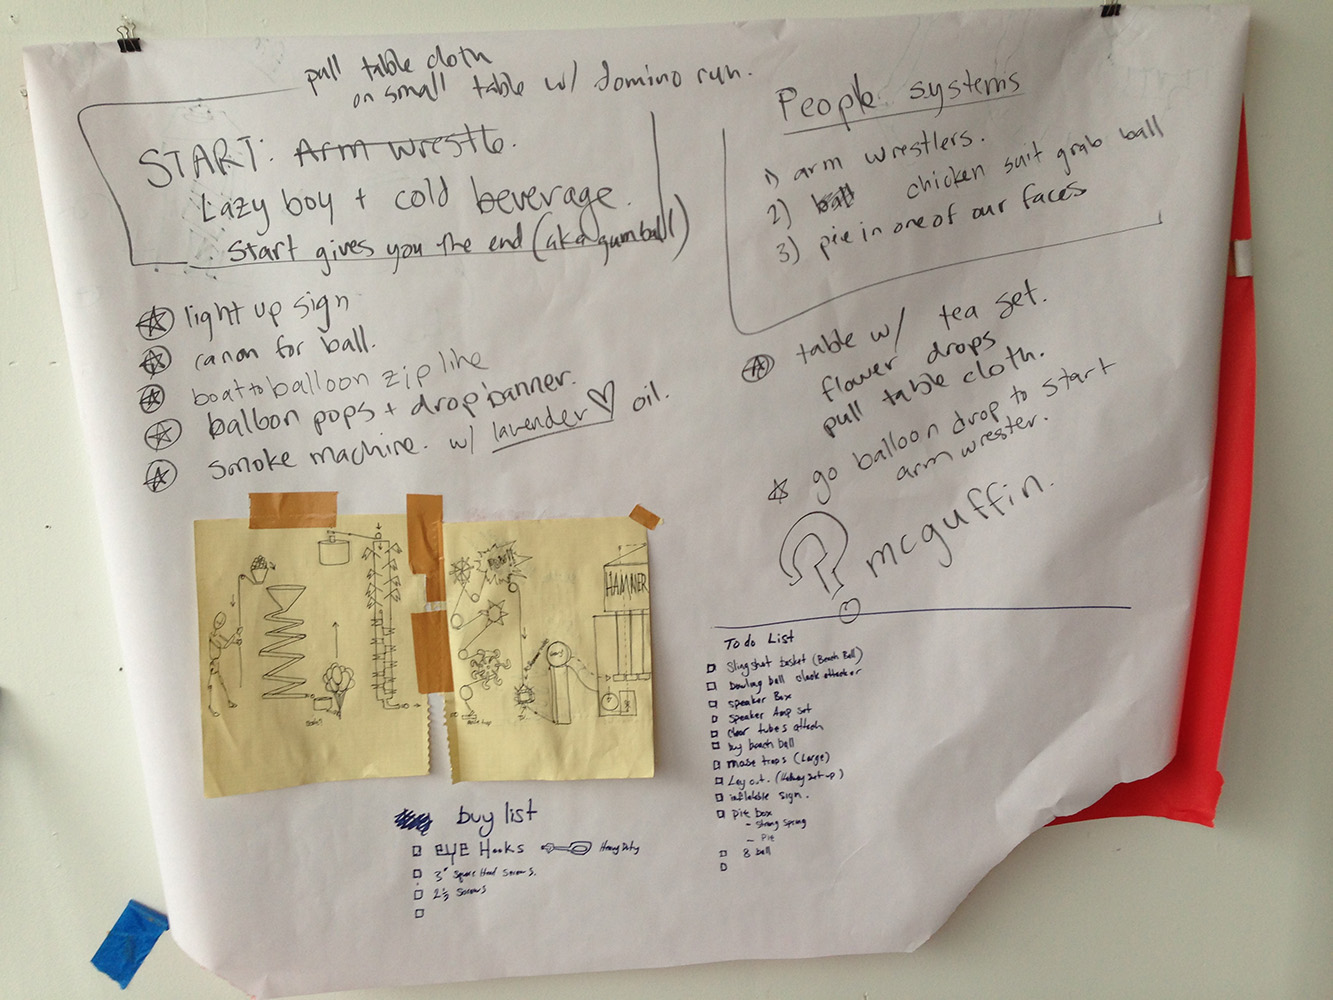 pull table cloth
on small table w/ domino run.
START: Arm wrestle.
Lazy boy + cold beverage.
Start gives you the end (aka gumball)
light up sign
canon for ball.
boat to balloon zip line
balloon pops + drop banner.
smoke machine. w/ lavender oil.
People systems
1) arm wrestlers.
2) ball chicken suit grab ball
3) pie in one of our faces
table w/ tea set.
flower drops
pull table cloth.
go balloon drop to start
arm wrester.
? mcguffin.
HAMMER
buy list
EYE Hooks Heavy Duty
3" Square Head Screws.
2½ Screws
To do List
Slingshot basket (Beach Ball)
bowling ball
speaker Box
speaker Amp set
clear tubes attach
buy beach ball
mouse traps (Large)
Lay out.
inflatable sign.
pie box
- Strong Spring
- Pie
8 ball